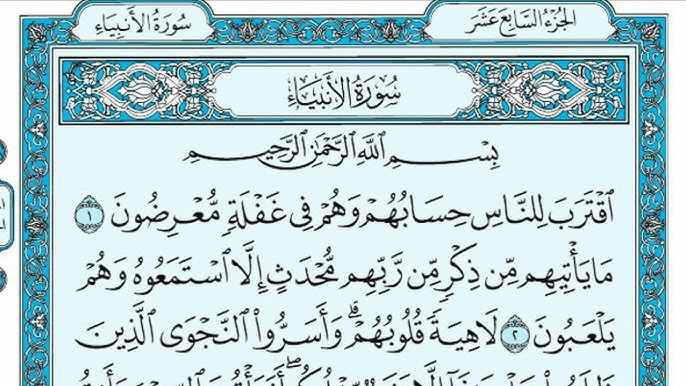 سُورَةُ الأَنبِيَاءِ
الجُزْءُ السَّابِعَ عَشَرَ
سُورَةُ الأَنبِيَاءِ
بِسْمِ اللَّهِ الرَّحْمَٰنِ الرَّحِيمِ
ٱقْتَرَبَ لِلنَّاسِ حِسَابُهُمْ وَهُمْ فِى غَفْلَةٍ مُّعْرِضُونَ ١
مَا يَأْتِيهِم مِّن ذِكْرٍ مِّن رَّبِّهِم مُّحْدَثٍ إِلَّا ٱسْتَمَعُوهُ وَهُمْ
يَلْعَبُونَ ٢ لَاهِيَةً قُلُوبُهُمْ ۗ وَأَسَرُّوا۟ ٱلنَّجْوَى ٱلَّذِينَ